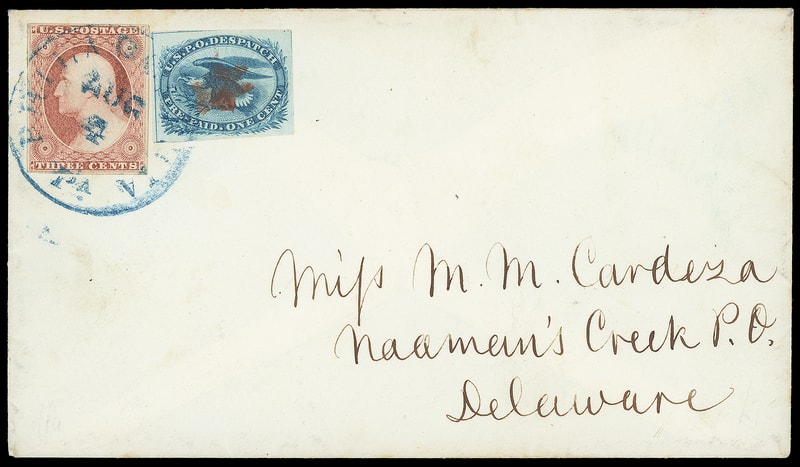 U.S. POSTAGE
THREE CENTS
U.S.P.O. DESPATCH
PRE-PAID. ONE CENT.
PHILADELPHIA
AUG
PA
Miſs M. M. Cardeza
Naaman's Creek P.O.
Delaware